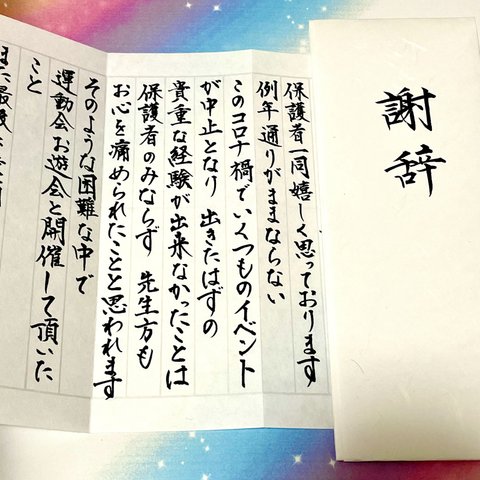 謝辞
保護者一同嬉しく思っております
例年通りがままならない
このコロナ禍でいくつものイベント
が中止となり 出きたはずの
貴重な経験が出来なかったことは
保護者のみならず 先生方も
お心を痛められたことと思われます
そのような困難な中で
運動会お遊会と開催して頂いた
こと